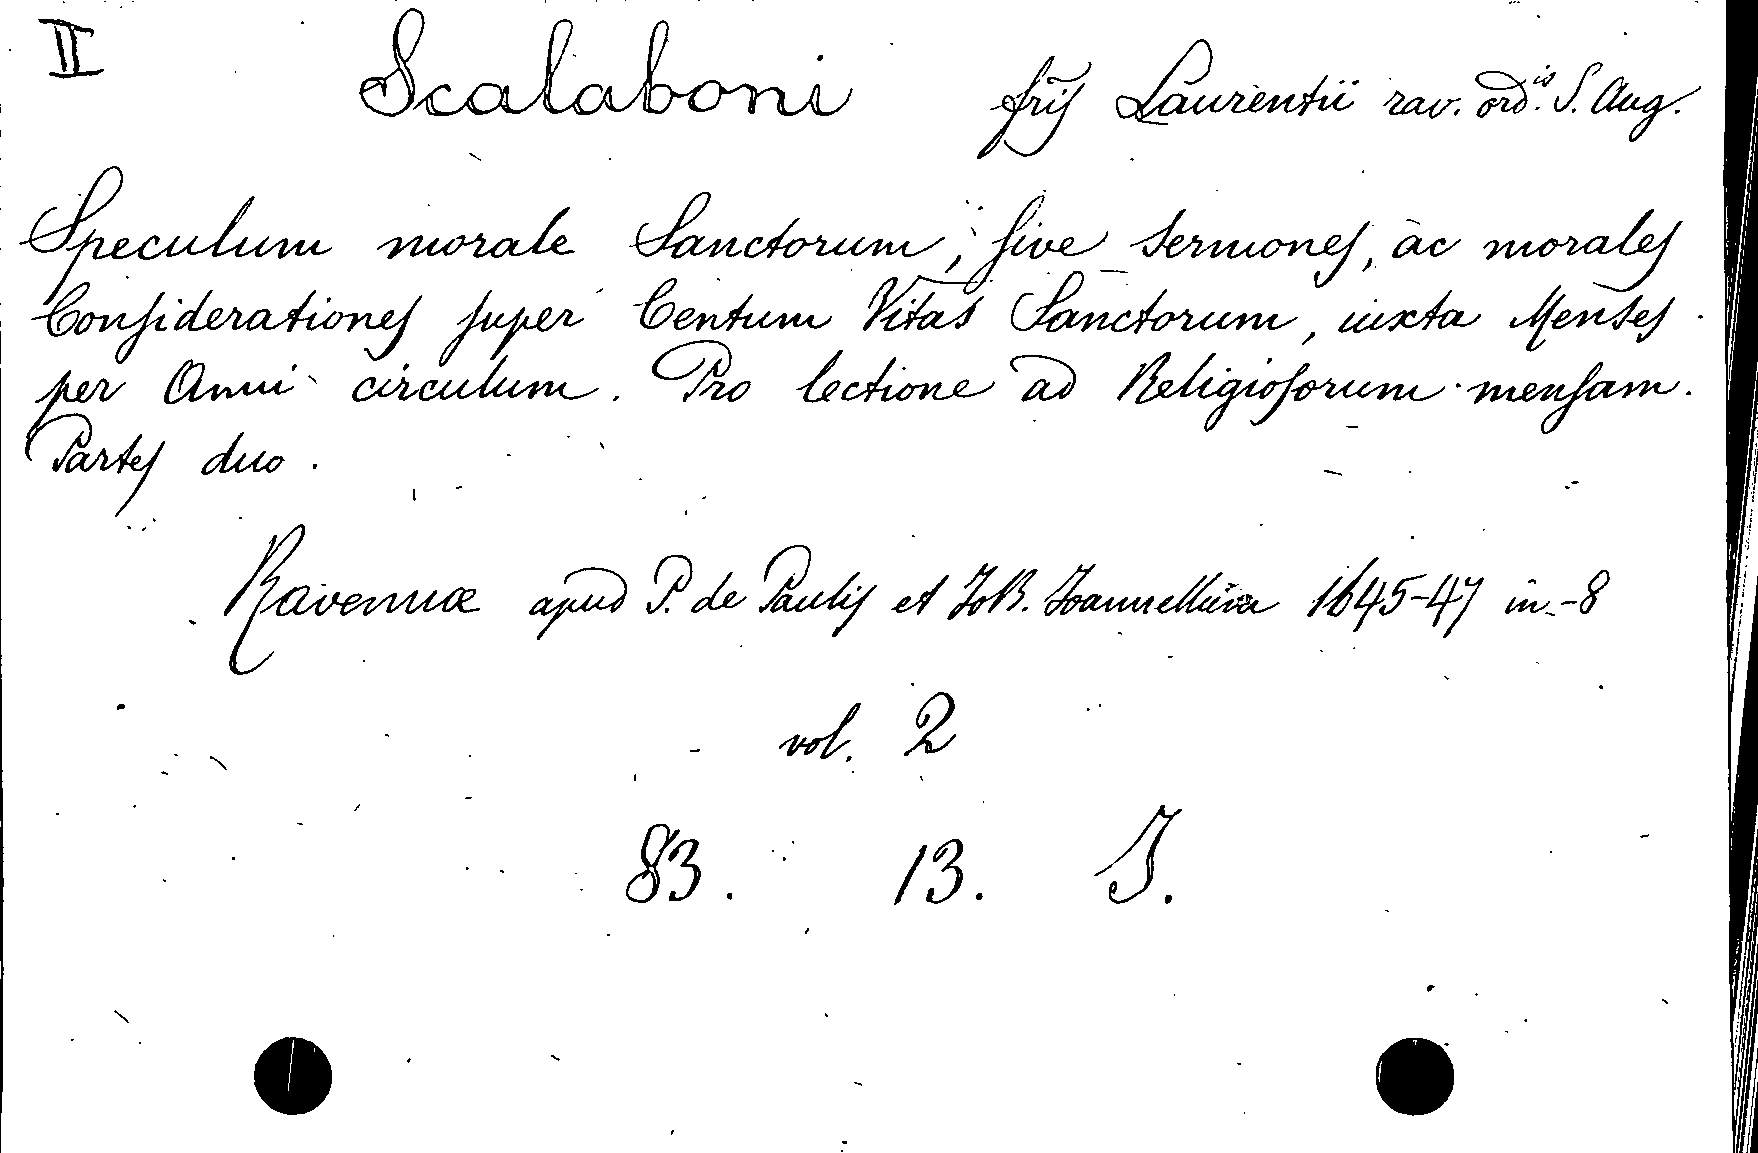 II Scalaboni frīs Laurentii rav. ord.is S. Aug.
Speculum morale Sanctorum, sive Sermones, ac morales
Considerationes super Centum Vitas Sanctorum, iuxta Menses
per Anni circulum. Pro lectione ad Religiosorum mensam.
Partes duo.
Ravennæ apud P. de Paulis et 1645-47 in-8
vol. 2
83. 13. I.